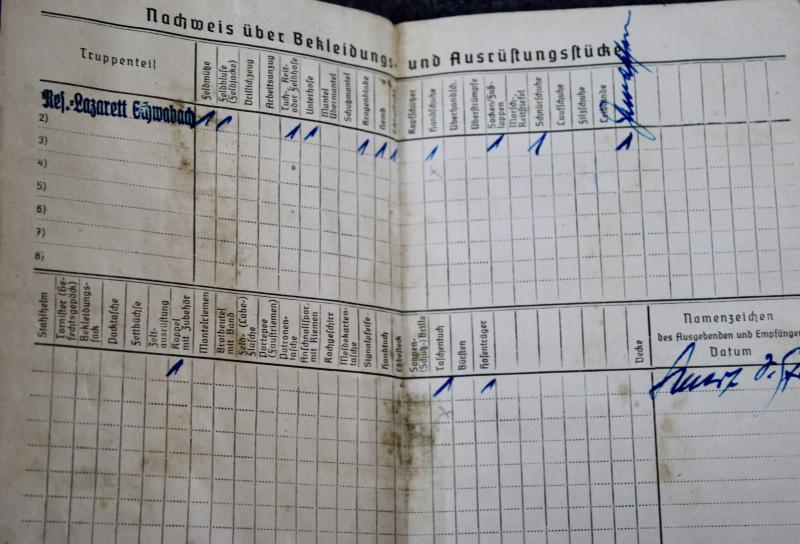 Nachweis über Bekleidungs- und Ausrüstungsstücke
Truppenteil
Feldmütze
Feldbluse (Feldjacke)
Drillichzeug
Arbeitsanzug
Tuch-, Reit- oder Feldhose
Unterhose
Mantel Übermantel
Schutzmantel
Kragenbinde
Hemd
Kopfschützer
Handschuhe
Überhandsch.
Überstrümpfe
Socken/Fußlappen
Marsch-, Reitstiefel
Schnürschuhe
Laufschuhe
Filzschuhe
Res.-Lazarett Schwabach
1 1 1 1 1 1 1 1 1 1
2)
3)
4)
5)
6)
7)
8)
Stahlhelm
Tornister (Gefechtsgepäck)
Bekleidungssack
Packtasche
Fettbüchse
Zeltausrüstung
Koppel mit Zubehör
Mantelriemen
Brotbeutel mit Band
Feld- (Labe-) Flasche
Portepee (Faustriemen)
Patronentasche
Anschnallspor. mit Riemen
Kochgeschirr
Meldekartentasche
Signalpfeife
Handtuch
Eßbesteck
Sonnen- (Schutz-) Brille
Taschentuch
Bürsten
Hosenträger
Decke
Namenzeichen
des Ausgebenden und Empfängers
Datum
1 1 1